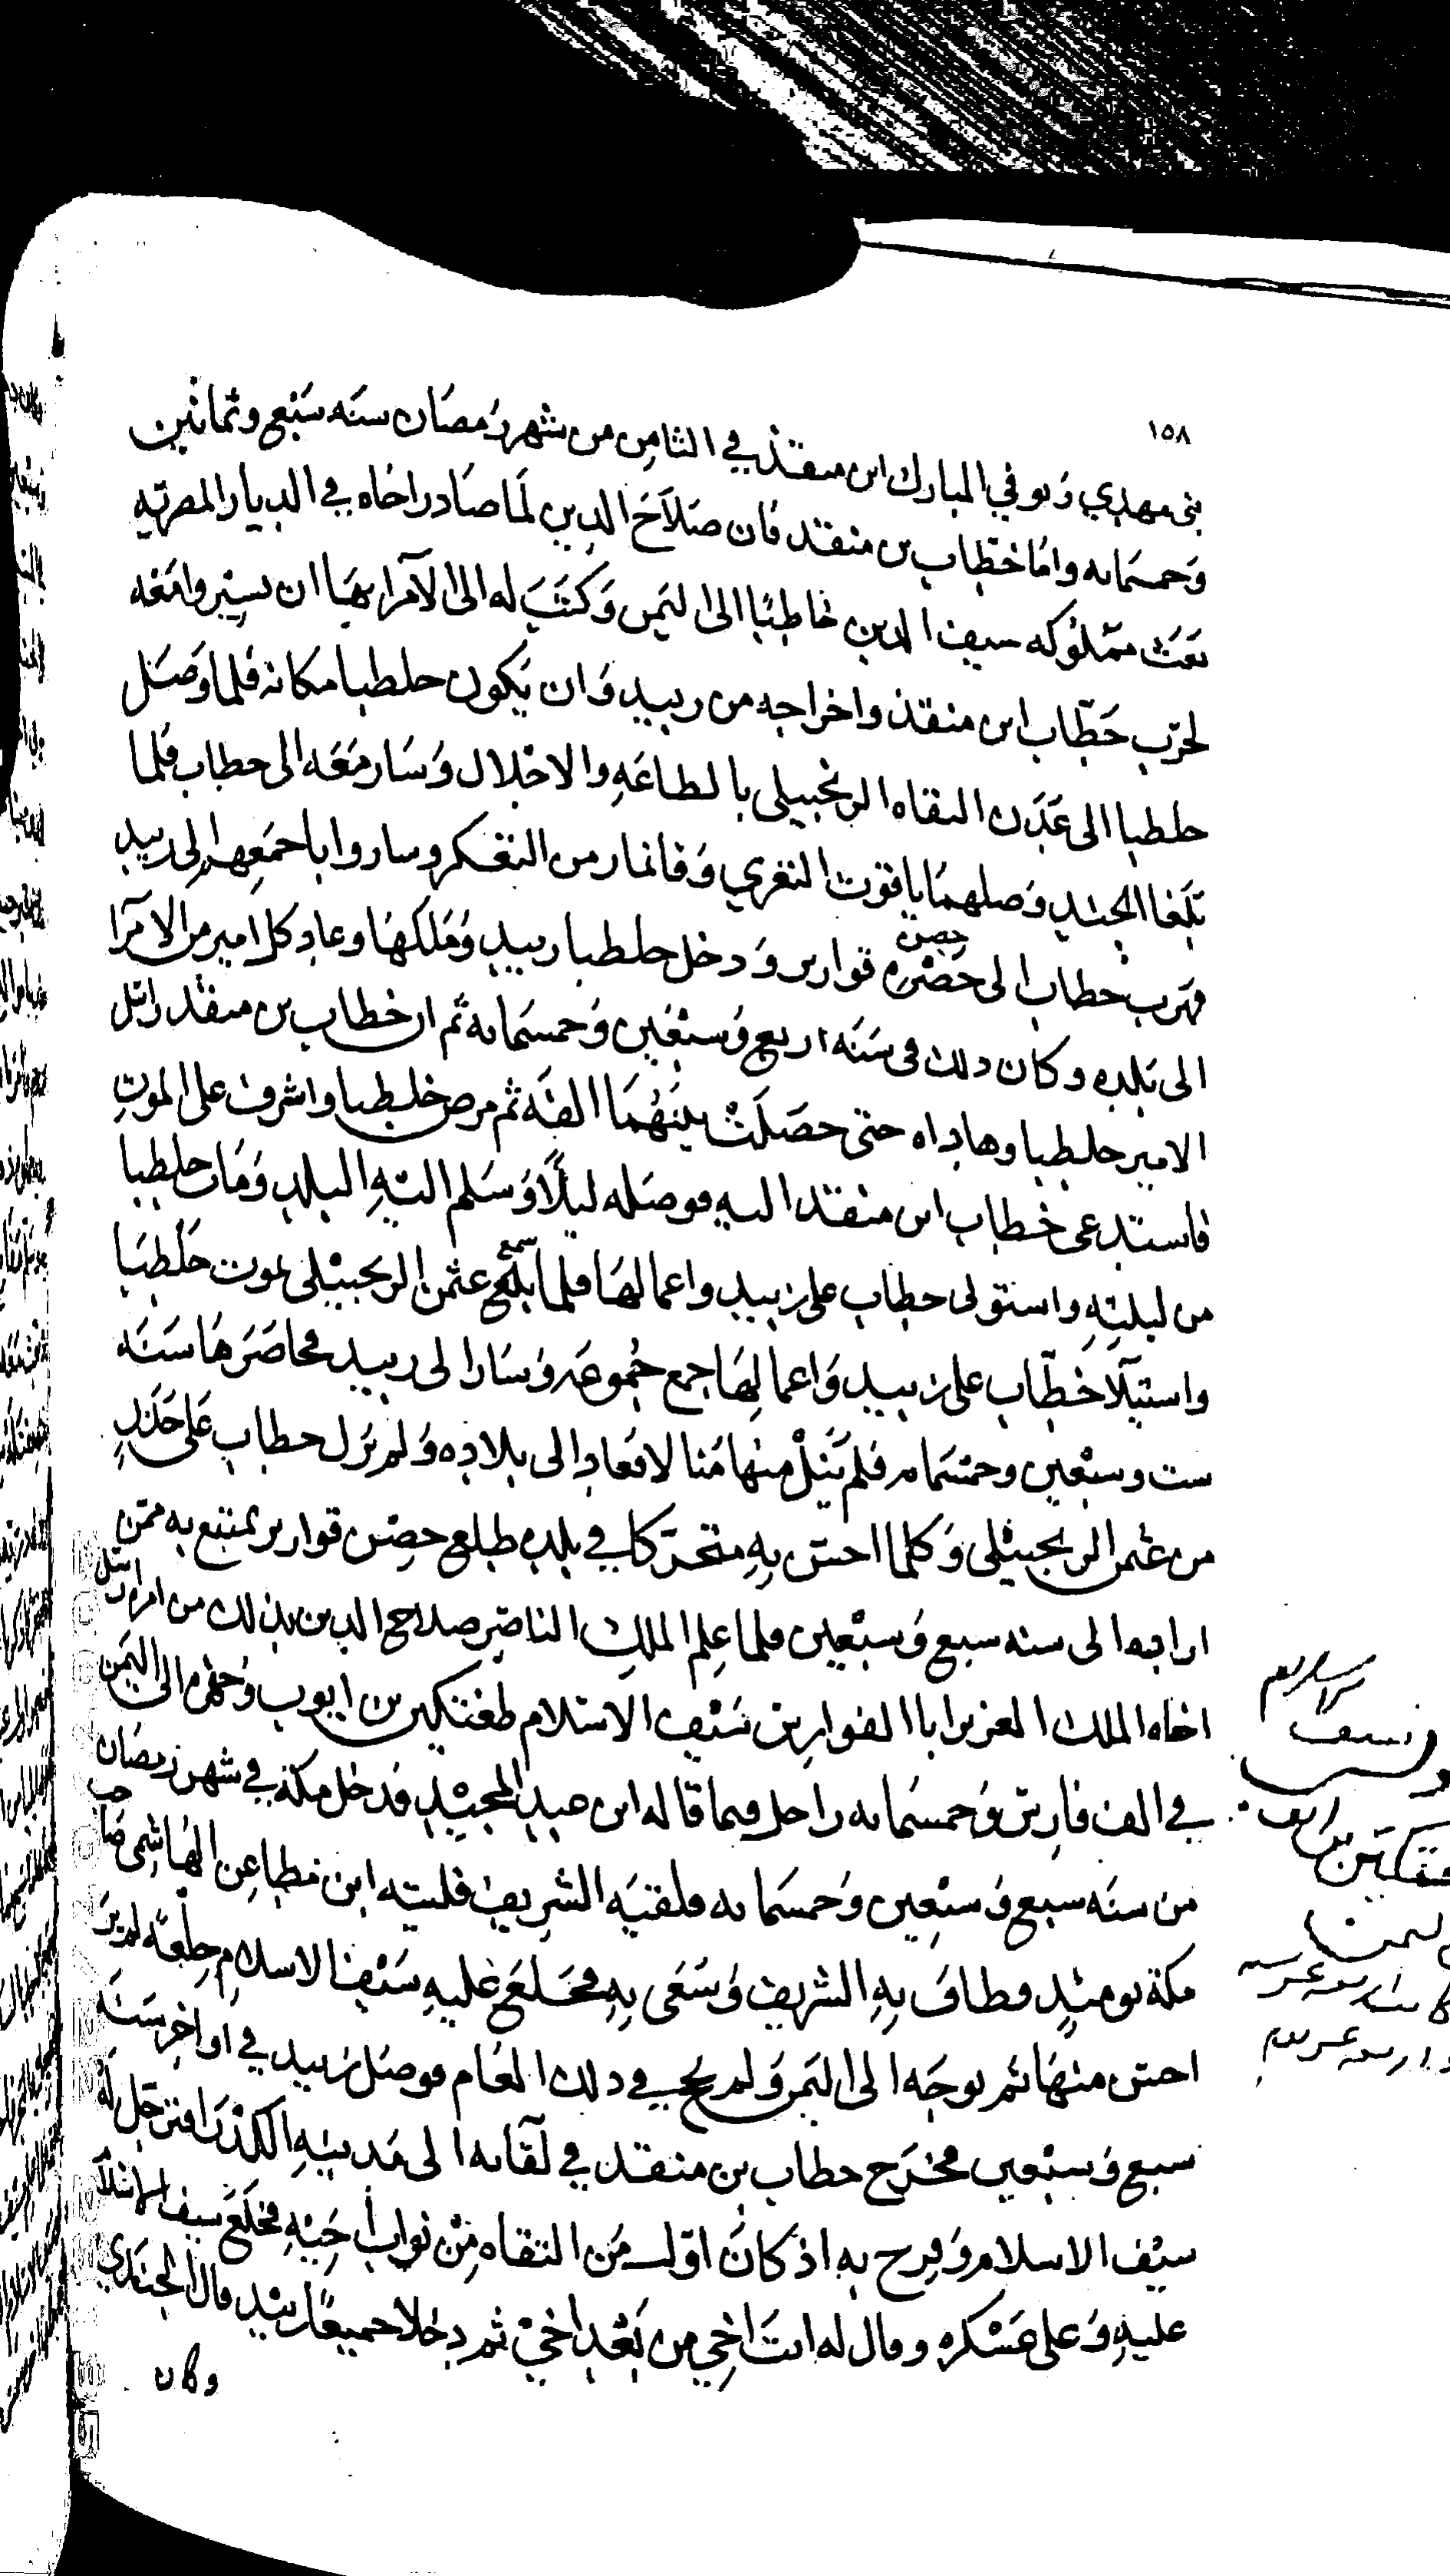 ١٥٨
بنى مهدي وتوفي المبارك ابن منقذ في الثامن من شهر رمضان سنه سبع وثمانين
وخمسمايه واما خطاب بن منقذ فان صلاح الدين لما صادر اخاه في الديار المصريه
بعث مملوكه سيف الدين خاطبا الى اليمن وكتب له الى الامرا بها ان يسيروا معه
لحرب حطاب ابن منقذ واخراجه من زبيد وان يكون حلطبا مكانه فلما وصل
حلطبا الى عدن التقاه الزنجبيلى بالطاعه والاجلال وسار معه الى حطاب فلما
بلغا الجند وصلهما ياقوت التغري وقانمار من التعكر وساروا باجمعهم الى زبيد
فهرب حطاب الى حصن قوارير ودخل حلطبا زبيد وملكها وعاد كل امير من الامرا
الى بلده وكان ذلك في سنه اربع وسبعين وخمسمايه ثم ان خطاب بن منقذ راسل
الامير حلطبا وهاداه حتى حصلت بينهما الفه ثم مرض خلطبا واشرف على الموت
فاستدعى خطاب ابن منقذ اليه فوصله ليلا وسلم اليه البلد ومات حلطبا
من ليلته واستولى حطاب على زبيد واعمالها فلما سمع عثمن الزنجبيلى بموت حلطبا
واستيلا خطاب على زبيد واعمالها جمع جموعه وسار الى زبيد فحاصرها سنه
ست وسبعين وخمسمايه فلم ينل منها منالا فعاد الى بلاده ولم يزل حطاب على حذر
من عثمن الزنجبيلى وكلما احس به متحركا في بلده طلع حصن قوارير يمتنع به ممن
ارادبه الى سنه سبع وسبعين فلما علم الملك الناصر صلاح الدين بذلك من امره ارسل
اخاه الملك العزيز ابا الفوارس سيف الاسلام طغتكين بن ايوب وجهزه الى اليمن
في الف فارس وخمسمايه راجل فيما قاله ابن عبد المجيد فدخل مكة في شهر رمضان
من سنه سبع وسبعين وخمسمايه فلقيه الشريف فليته ابن مطاعن الهاشمي صاحب
مكة يوميذ وطاف به الشريف وسعى به فخلع عليه سيف الاسلام خلعه لم ير
احسن منها ثم توجه الى اليمن ولم يحج في ذلك العام فوصل زبيد في اواخر سنه
سبع وسبعين فخرج حطاب بن منقذ في لقايه الى مدينه الكدرا فترجل له
سيف الاسلام وفرح به اذ كان اول من التقاه من نواب اخيه فخلع سيف الاسلام
عليه وعلى عسكره وقال له انت اخي من بعد اخي ثم دخلا جميعا زبيد قال الجندي
وكان